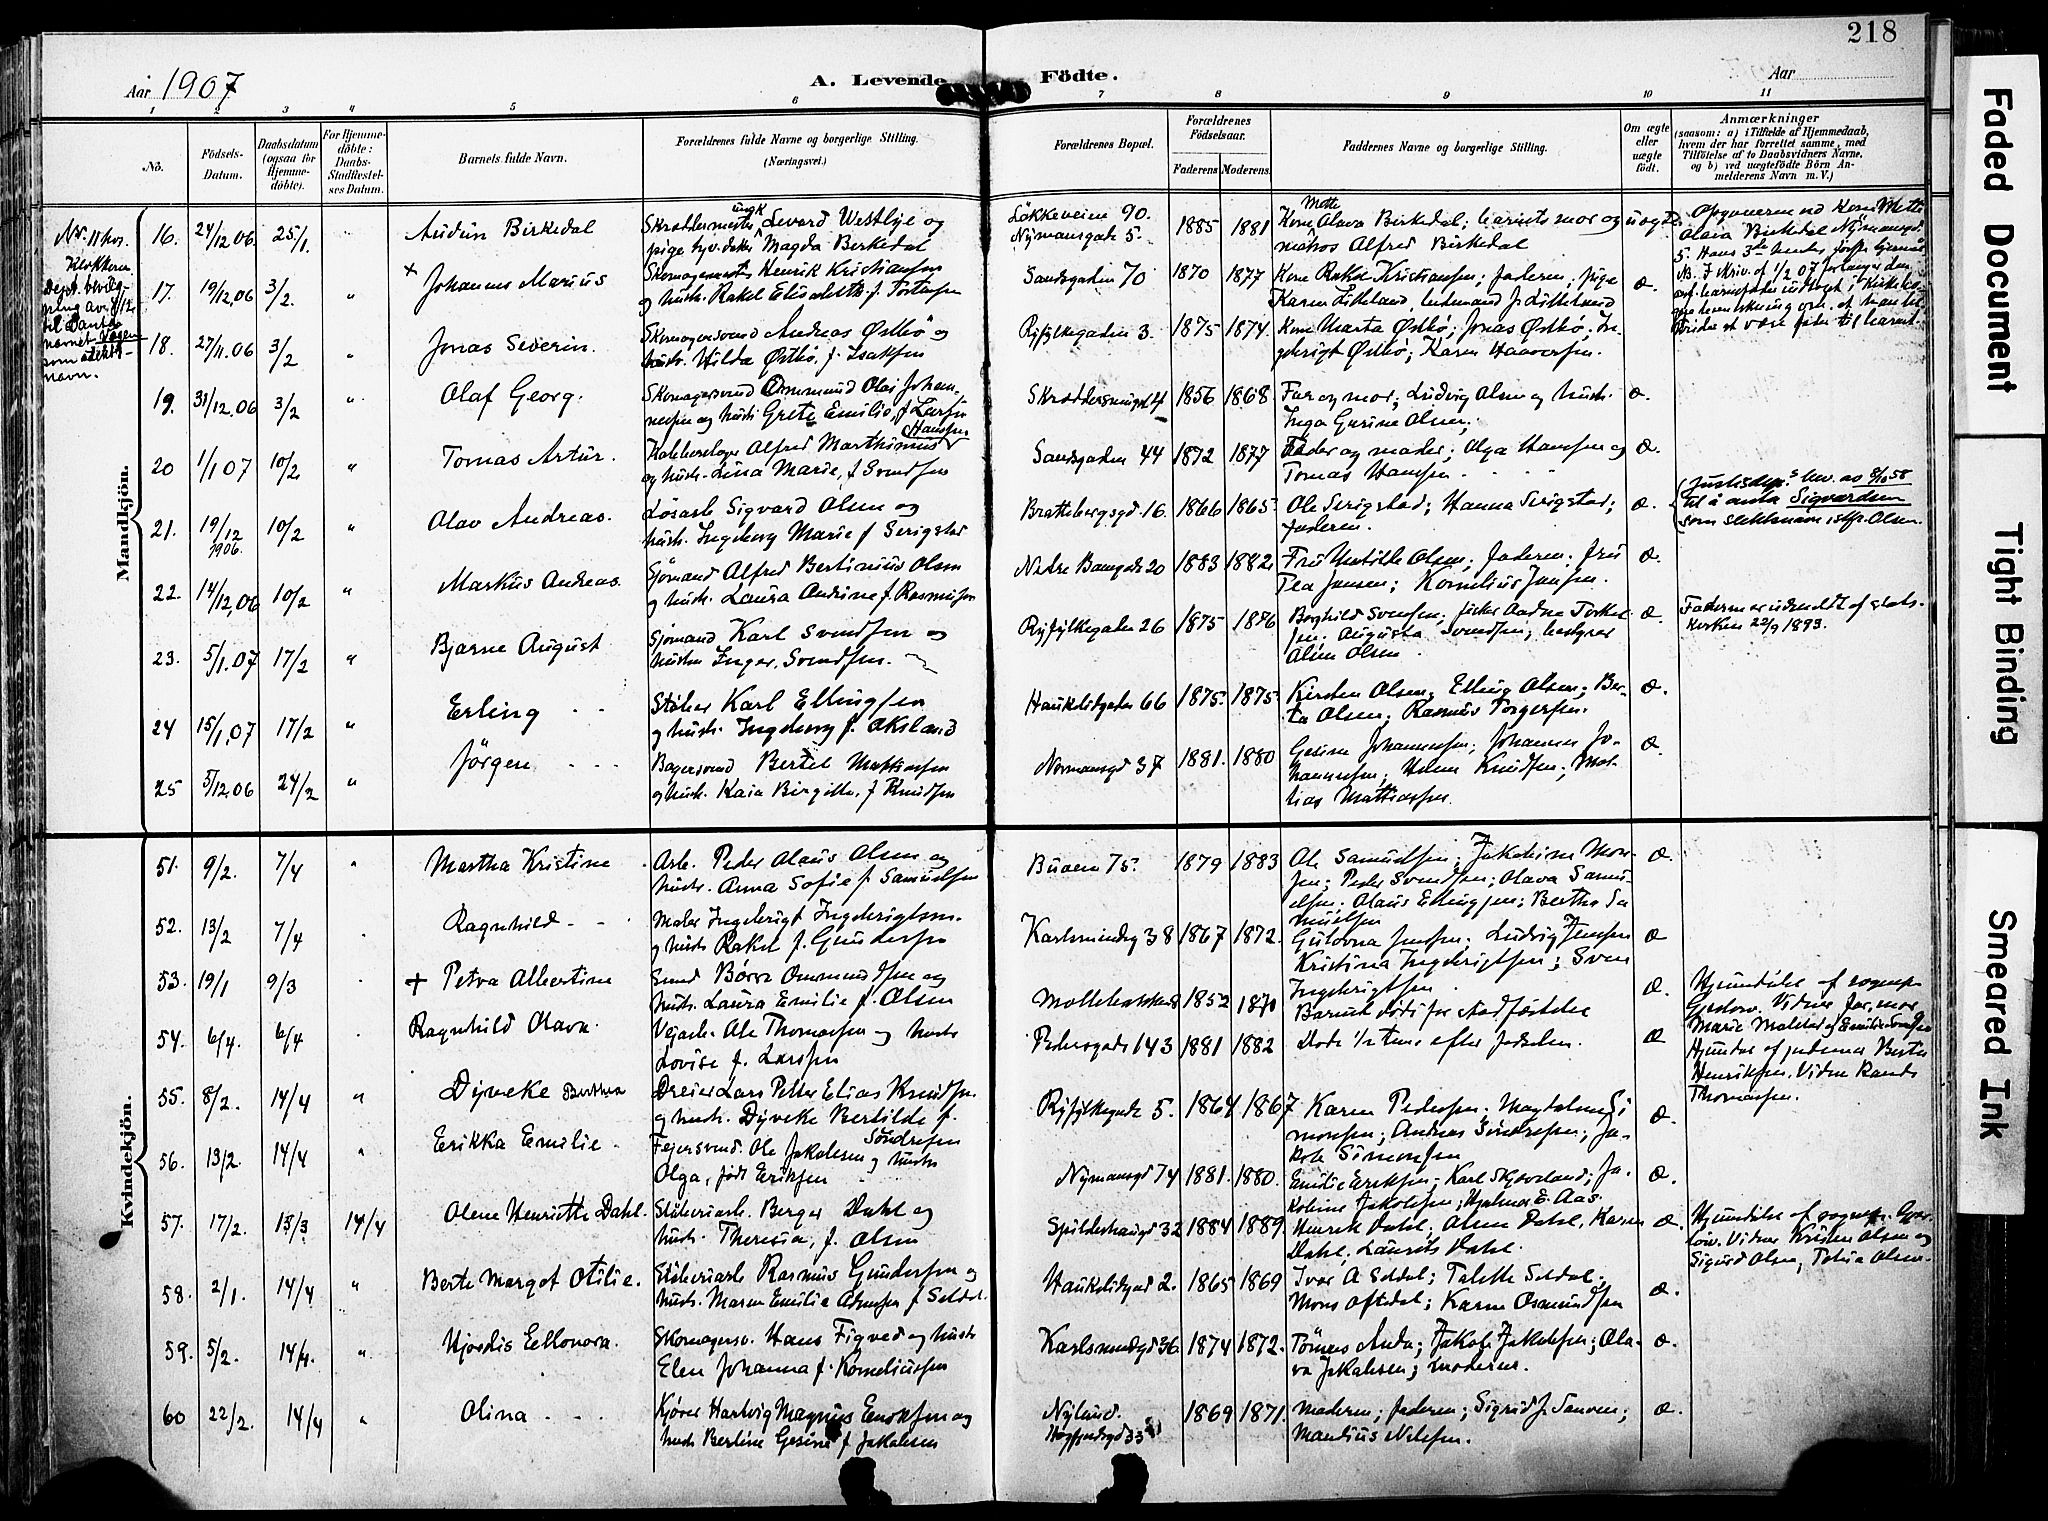 218
Aar 1907
A. Levende Födte.
Aar
1 2 3 4 5 6 7 8 9 10 11
No.
Födsels-Datum.
Daabsdatum (ogsaa for Hjemme-döbte).
For Hjemme-döbte: Daabs-Stadfæstel-ses Datum.
Barnets fulde Navn.
Forældrenes fulde Navne og borgerlige Stilling. (Næringsvei.)
Forældrenes Bopæl.
Forældrenes Födselsaar.
Faderens Moderens
Faddernes Navne og borgerlige Stilling.
Om ægte eller uægte födt.
Anmærkninger
(saasom: a) i Tilfælde af Hjemmedaab, hvem der har forrettet samme, med Tilföielse af to Daabsvidners Navne, og b) ved uægtefödte Börn An-melderens Navn m. V.)
Mandkjön.
navnet Vagen
som slekts-
navn.
16. 24/12.06 25/1. Audun Birkedal
Skræddermester Severd Westbye og
pige Magda Birkedal
Løkkeveien 90.
Nymansgade 5.
1885 1881
Kone Olava Birkedal; barnets mor og
Alfred Birkedal
uægte
17. 19/12.06 3/2. " + Johannes Marius
Skomagermester Henrik Kristiansen
og hustr. Rakel Elisabeth f. Tostensen
Sandsgaden 70 1870 1877
Kone Rakel Kristiansen; faderen; pige
Karen Litleland
æ.
18. 27/11.06 3/2 " Jonas Severin.
Skomagersvend Andreas Østbø og
hustr. Hilda Østbø, f. Isaksen
Ryfylkegaden 3. 1875 1874.
Kone Marta Østbø; Jonas Østbø; In-
gebrigt Østbø; Karen Haaversen.
19. 31/12.06 3/2 " Olaf Georg.
Skomagersvend Ommund Olai Johan-
nesen og hustr. Grete Emilie, f. Larsen
Hansen
1856 1868
Far og mor; Ludvig Olsen og hustr.
Inga Gurine Olsen;
æ.
20 1/1 07 10/2. " Tomas Artur.
Alfred Marthinius
og hustr. Lina Marie, f. Svendsen
Sandsgaden 44 1872 1877
Fader og moder; Olga Hansen og
Tomas Hansen
æ.
21. 19/12 1906. 10/2 " Olav Andreas.
Løsarb. Sigvard Olsen og
hustr. Ingeborg Marie f. Serigstad
Brattebergsgd. 16. 1866 1865
Ole Serigstad; Hanna Serigstad;
faderen.
æ.
til å anta Sigvardsen
som slektsnavn istf. Olsen.
22. 14/12.06 10/2 " Markus Andreas.
Sjømand Alfred Bertinius Olsen
og hustr. Laura Andrine f. Rasmussen
Nedre Bangade 20 1883 1882
Fru Matilde Olsen; faderen; fru
Tea Jansen; Kornelius Jansen.
æ.
23. 5/1.07 17/2 " Bjarne August
Sjømand Karl Svendsen og
hustru Inger Svendsen.
Ryfylkegaden 26 1875 1876
Borghild Svendsen;
Augusta Svendsen; bestyrer
Olsen.
æ.
Faderen er udmeldt af stats-
kirken 22/9 1893.
24 15/1.07 17/2 " Erling
Støber Karl Ellingsen
og hustr. Ingeborg f. Aksland
Haukelidgaden 66 1875. 1875
Kirsten Olsen; Elling Olsen; Ber-
ta Olsen; Rasmus Torgersen.
æ.
25 5/12.06 24/2 " Jørgen
Bagersvend Bertel Mattiassen
og hustr. Kaia Birgitte, f. Knudsen
Normansgd 37 1881. 1880
Gesine Johannesen; Johannes Jo-
hannesen; Knudsen; Mat-
tias Mattiassen.
æ.
Kvindekjön.
51. 9/2. 7/4 Martha Kristine
Arb. Peder Olaus Olsen og
hustr. Anna Sofie f. Samuelsen
Buøen 75. 1879 1883
Ole Samuelsen; Jakobine Mon-
sen; Peder Svendsen; Olava Samu-
elsen; Olaus Ellingsen; Bertha Sa-
muelsen
æ.
52. 13/2 7/4 Ragnhild
Maler Ingebrigt Ingebrigtsen
og hustr. Rakel f. Gundersen
Karlsmindeg 38 1867 1872.
Gulovna Jensen; Ludvig Jensen
Kristina Ingebrigtsen; Sven
Ingebrigtsen
æ
53. 19/1 9/3 + Petra Albertine
Børre Ommundsen og
hustr. Laura Emilie f. Olsen
1852 1870
Barnet døde før stadfæstelse
æ.
Hjemdøbt af sognepr.
Gjerløw. Vidner far, mor
54. 6/4. 6/4 Ragnhild Olava.
Vejarb. Ole Thomassen og hustr.
Lovise f. Larsen
Pedersgade 143 1881 1882
Døde 1/2 time efter fødselen.
æ
Hjemdøbt af jordemor Berta
Henriksen. Vidne Randi
Thomassen.
55. 8/2. 14/4 " Dyveke Berthea
Dreier Lars Petter Elias Knudsen
og hustr. Dyveke Bertilde f.
Sondresen
Ryfylkegade 5. 1864 1867
Karen Pedersen; Magdalena Si-
monsen; Andreas Sondresen; Ja-
kob Simonsen
æ.
56. 13/2. 14/4 " Erikka Emilie
Feiersvend. Ole Jakobsen og hustr.
Olga, født Eriksen
Nymansgd 74 1881. 1880.
Emilie Eriksen; Karl Skjæveland; Ja-
kobine Jakobsen; Hjalmar E. Aas.
æ.
57. 17/2. 15/3 14/4 Olene Henriette Dahl.
Støberiarb. Berger Dahl og
hustr. Theresia, f. Olsen
Spilderhaugd 32 1884 1889.
Henrik Dahl; Olene Dahl, Karen
Dahl, Laurits Dahl.
æ.
Hjemdøbt af sognepr. Gjer-
løw. Vidner Kristen Olsen og
Sigurd Olsen, Tobia Olsen.
58. 2/1. 14/4 " Berte Margot Otilie.
Støberiarb. Rasmus Gundersen og
hustr. Maren Emilie f. Seldal.
Haukelidgad 2. 1865 1869
Ivar A Seldal; Talette Seldal;
Mons Oftedal; Karen Osmundsen
æ.
59. 5/2. 14/4. " Hjordis Ellonora.
Skomagersv. Hans Figved og hustr.
Elen Johanna f. Korneliussen
Karlsmindegd 36. 1874 1872.
Tønnes Anda; Jakob Jakobsen; Ola-
va Jakobsen; moderen.
æ.
60 22/2. 14/4 " Olina
Kjører Hartvig Magnus Enoksen og
hustr. Berline Gesine f. Jakobsen
Nylund. 1869 1871.
Moderen; faderen; Sigrid Sanven;
Mandius Nilsen.
æ.
Faded Document
Tight Binding
Smeared Ink